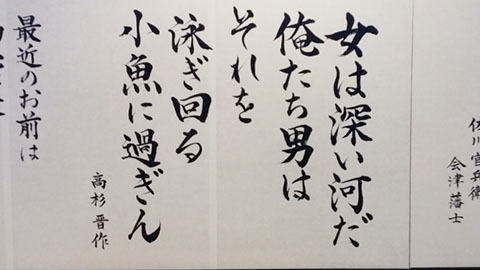 佐川官兵衛
会津藩士
女は深い河だ
俺たち男は
それを
泳ぎ回る
小魚に過ぎん
高杉晋作
最近のお前は